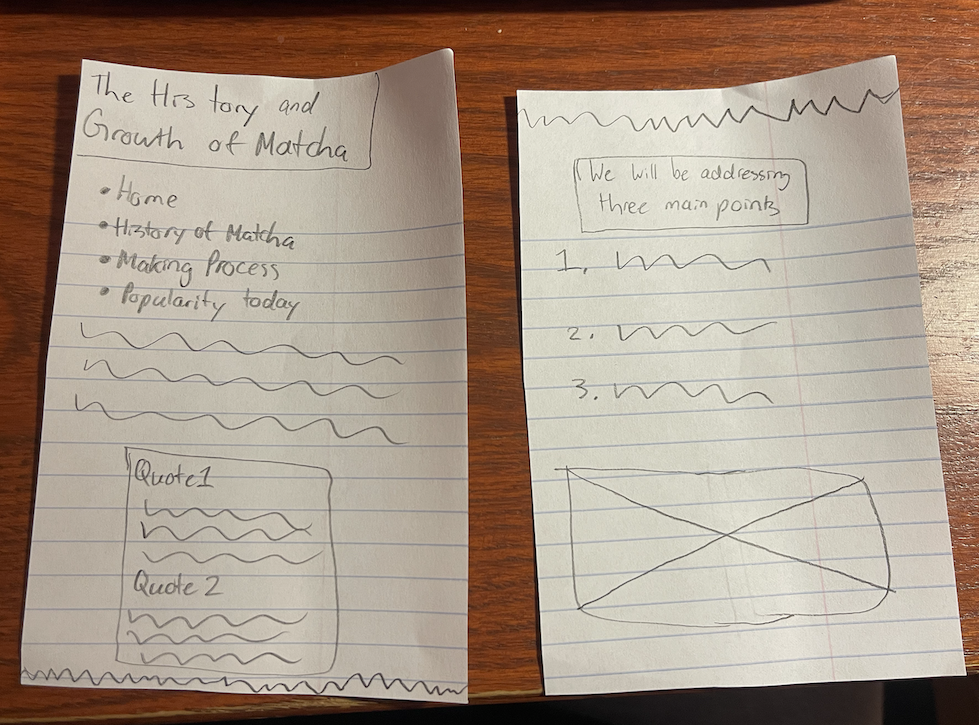 The History and
Growth of Matcha
• Home
• History of Matcha
• Making Process
• Popularity today
Quote 1
Quote 2
We will be addressing
three main points
1.
2.
3.